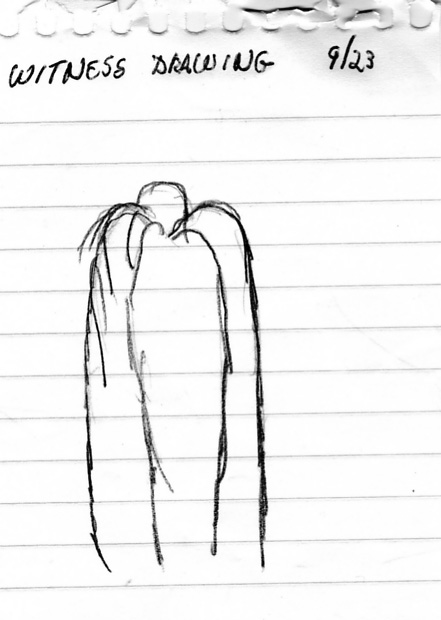 WITNESS DRAWING 9/23